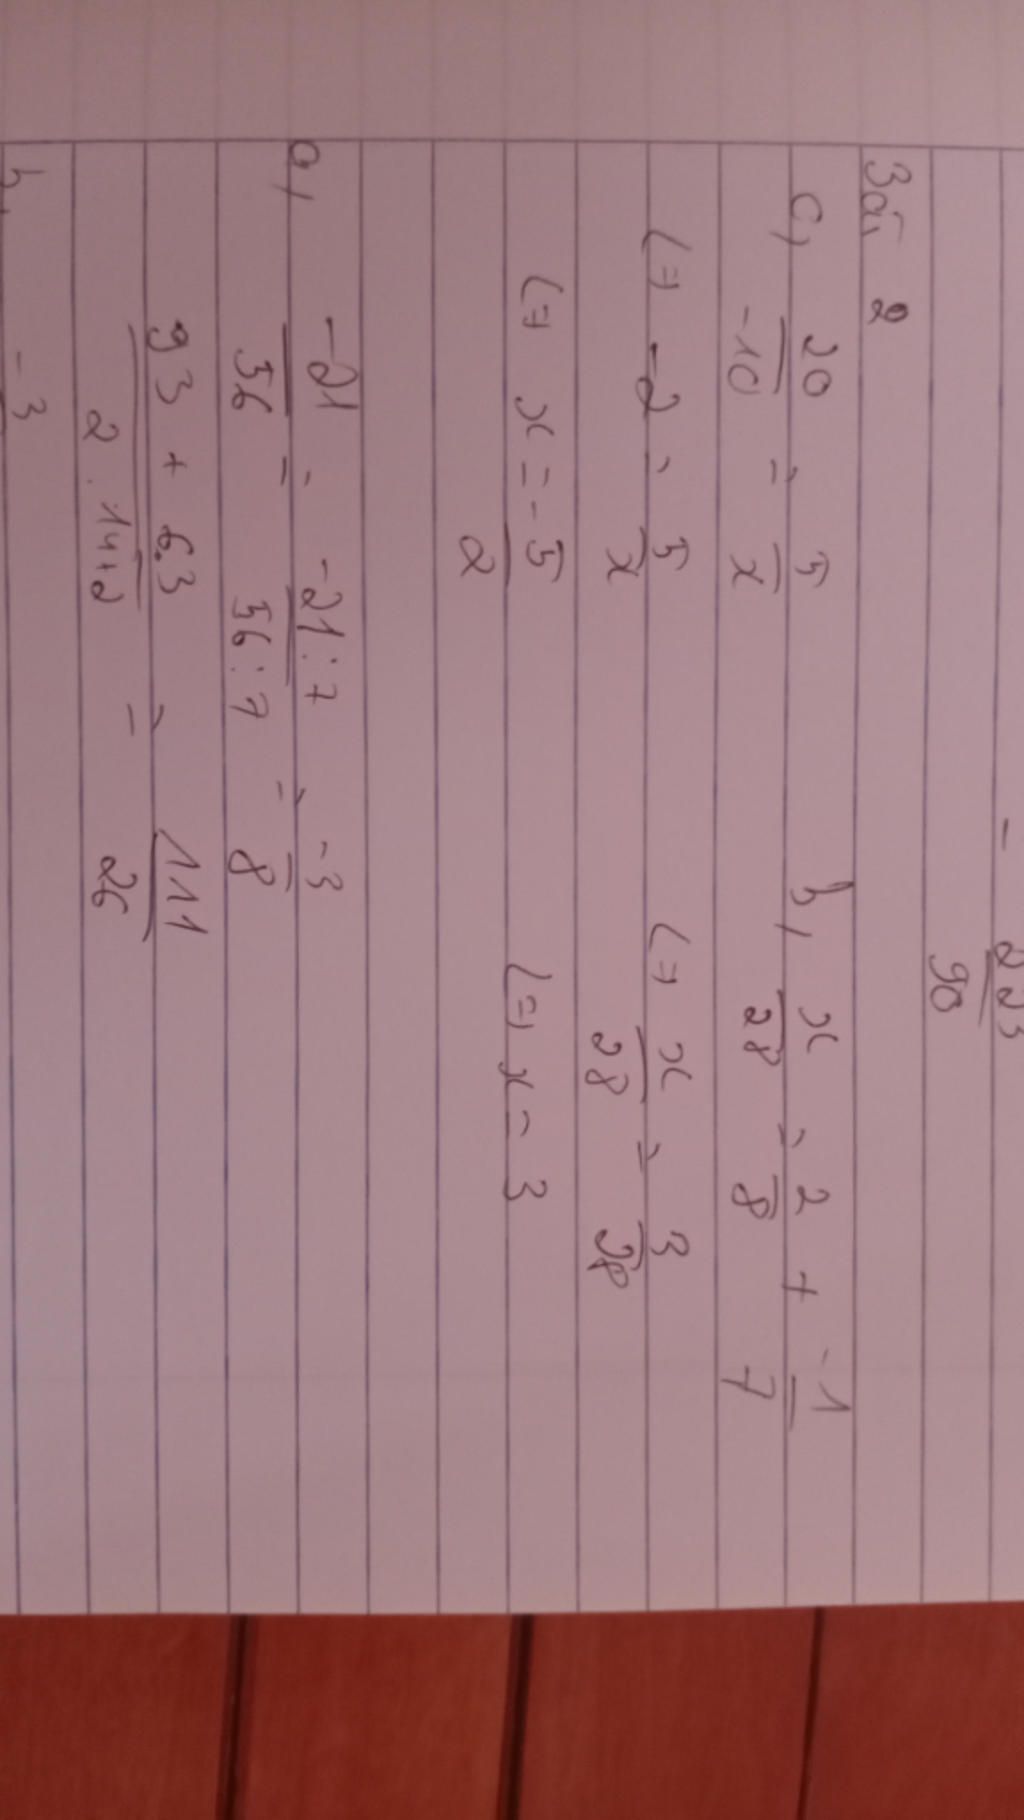 - 223/90
Bài 2
a, 20/-10 = 5/x
b, x/28 = 2/8 + -1/7
<=> -2 = 5/x
<=> x/28 = 3/28
<=> x = -5/2
<=> x = 3
a, -21/56 = -21:7/56:7 = -3/8
93 + 6.3/2.14+2 = 111/26
b, -3